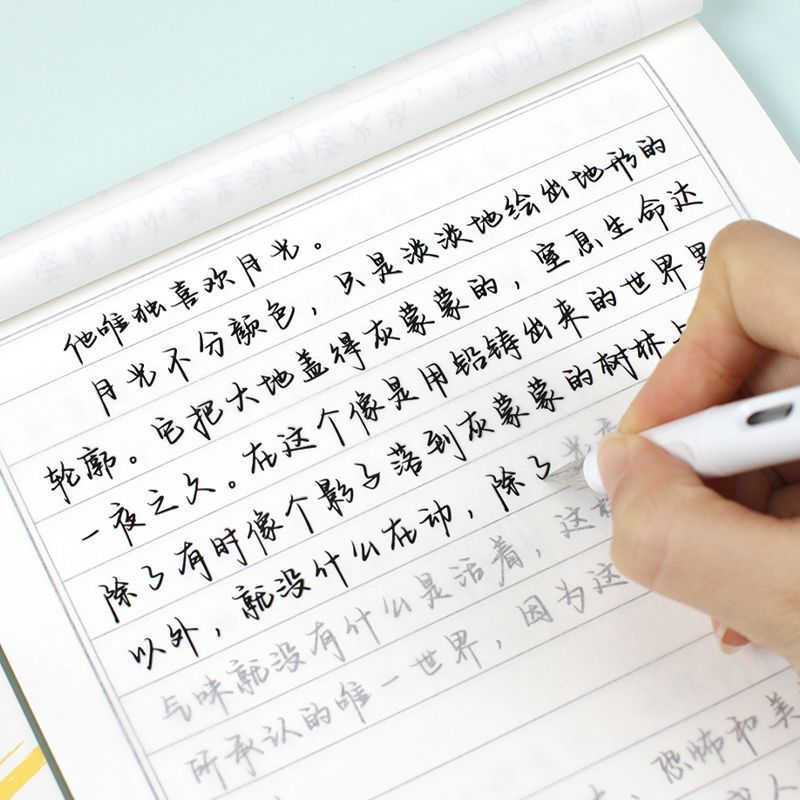 他唯独喜欢月光。
月光不分颜色，只是淡淡地绘出地形的
轮廓。它把大地盖得灰蒙蒙的，窒息生命达
一夜之久。在这个像是用铅铸出来的世界里
除了有时像个影子落到灰蒙蒙的树林上
以外，就没什么在动，除了
气味就没有什么是活着，这
所承认的唯一世界，因为这
恐怖和美
人